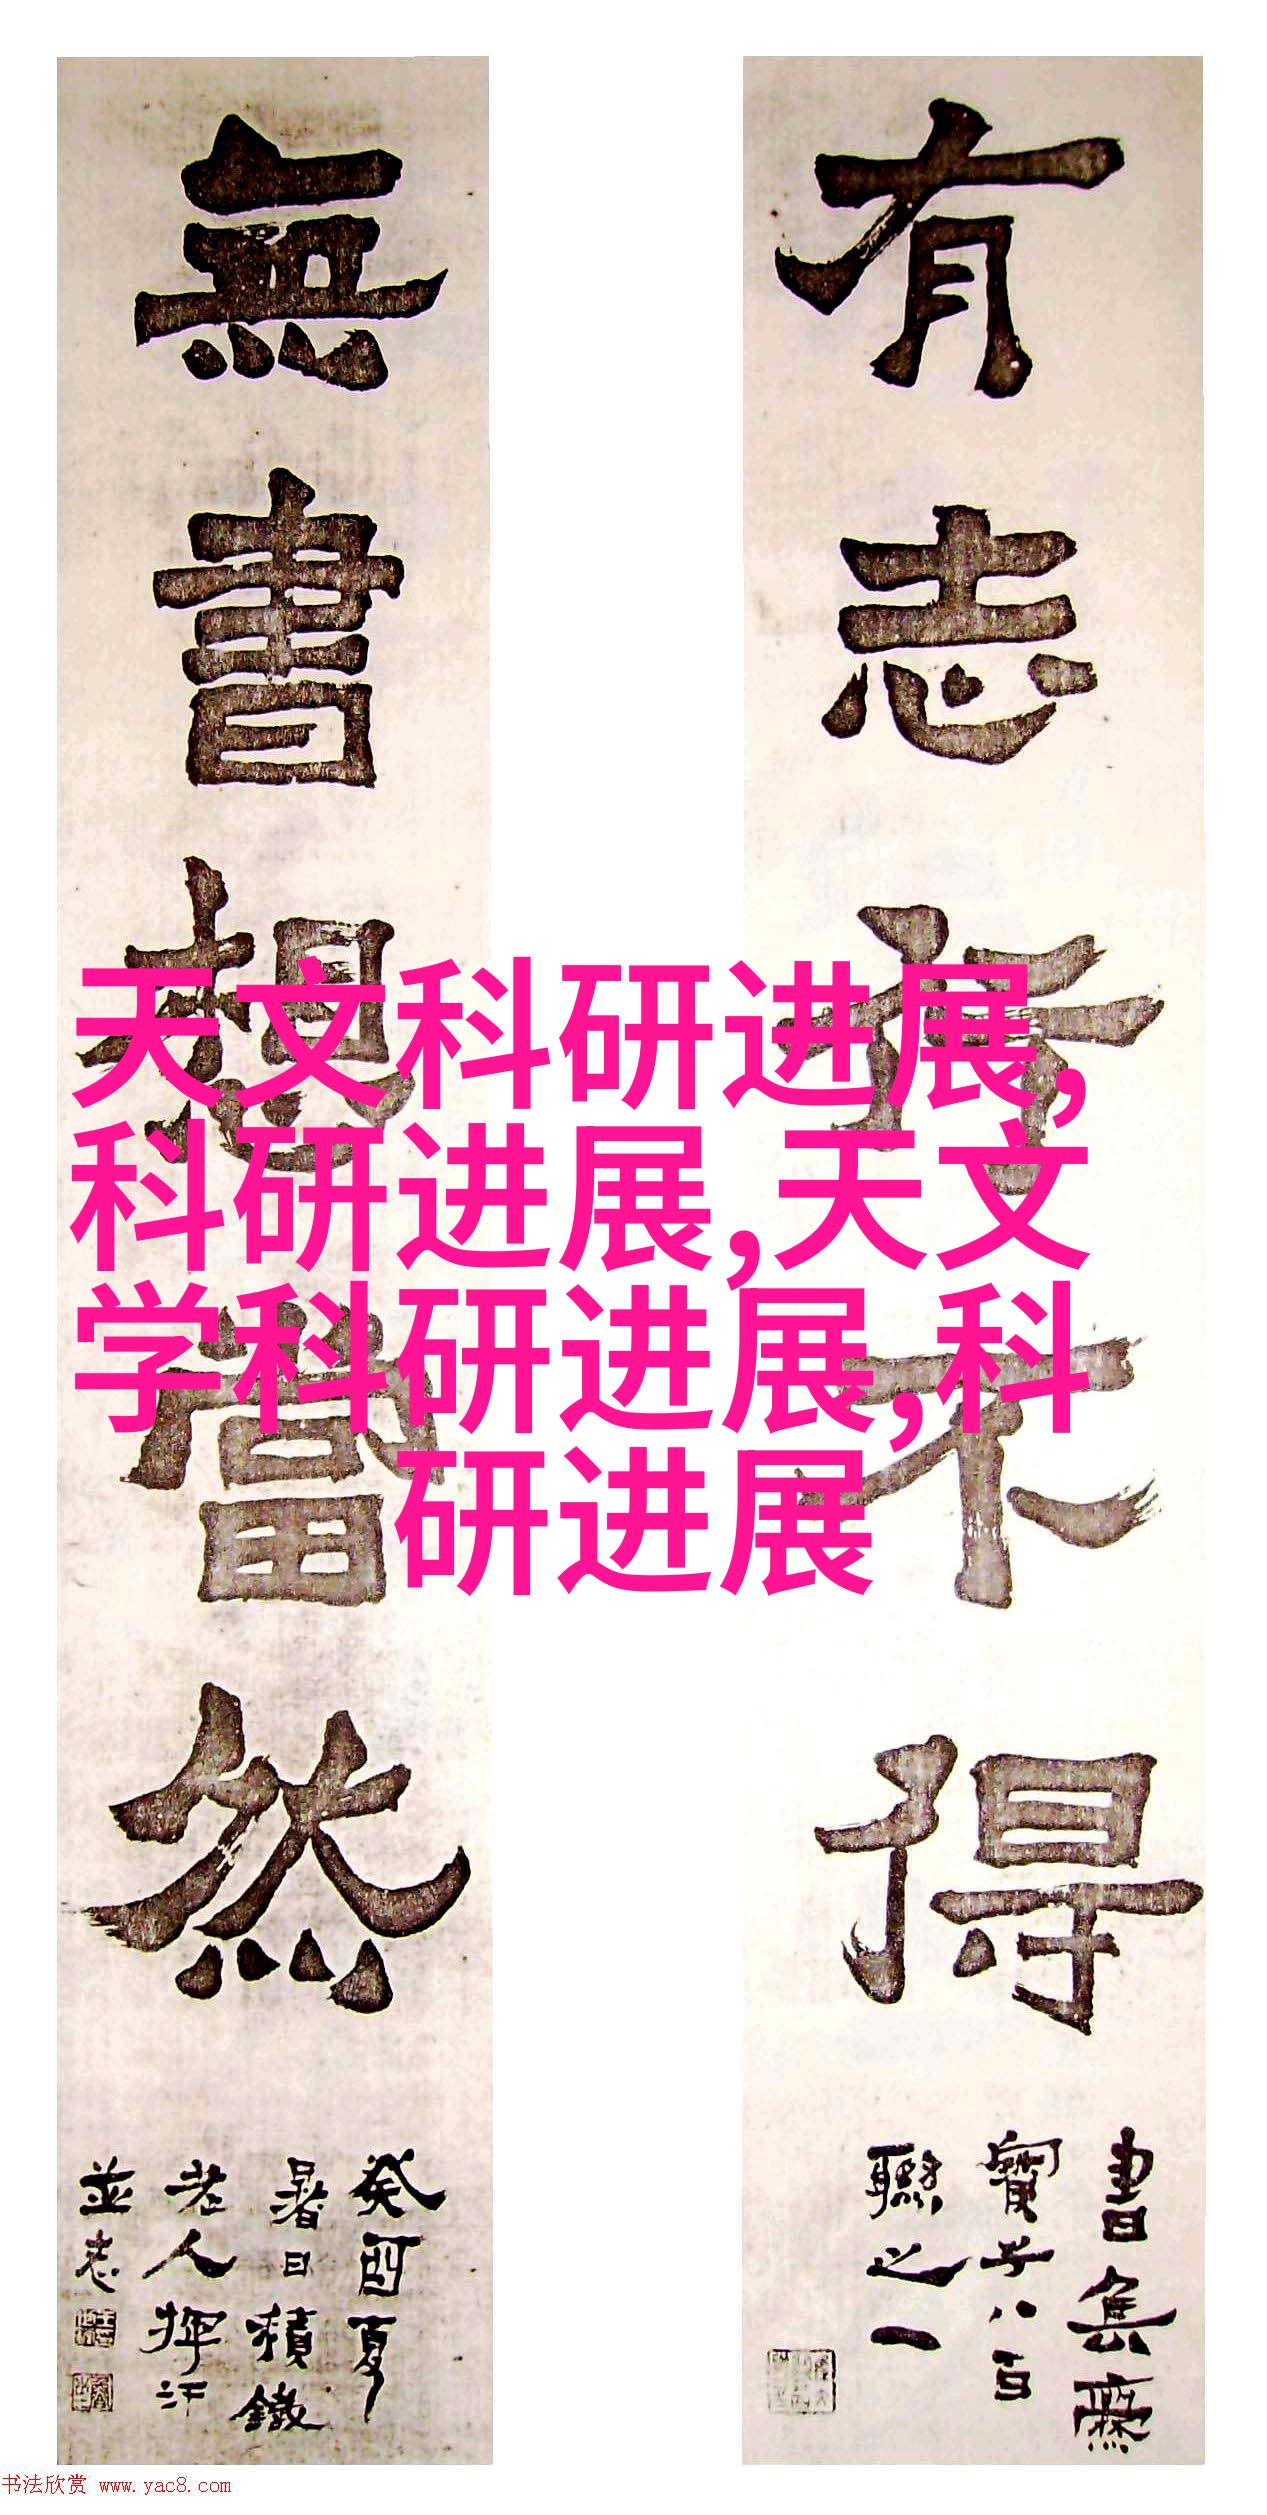 有志者不得
書集廠
寶子八百
聯之一
無書想當然
癸酉夏
暑日積鐵
老人揮汗
並志
天文科研进展,
科研进展,天文
学科研进展,科
研进展
书法欣赏 www.yac8.com